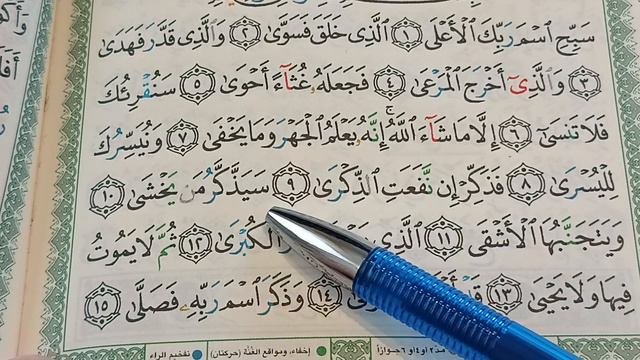 سَبِّحِ ٱسۡمَ رَبِّكَ ٱلۡأَعۡلَى ١ ٱلَّذِي خَلَقَ فَسَوَّىٰ ٢ وَٱلَّذِي قَدَّرَ فَهَدَىٰ
٣ وَٱلَّذِيٓ أَخۡرَجَ ٱلۡمَرۡعَىٰ ٤ فَجَعَلَهُۥ غُثَآءً أَحۡوَىٰ ٥ سَنُقۡرِئُكَ
فَلَا تَنسَىٰٓ ٦ إِلَّا مَا شَآءَ ٱللَّهُۚ إِنَّهُۥ يَعۡلَمُ ٱلۡجَهۡرَ وَمَا يَخۡفَىٰ ٧ وَنُيَسِّرُكَ
لِلۡيُسۡرَىٰ ٨ فَذَكِّرۡ إِن نَّفَعَتِ ٱلذِّكۡرَىٰ ٩ سَيَذَّكَّرُ مَن يَخۡشَىٰ ١٠
وَيَتَجَنَّبُهَا ٱلۡأَشۡقَى ١١ ٱلَّذِي ٱلۡكُبۡرَىٰ ١٢ ثُمَّ لَا يَمُوتُ
فِيهَا وَلَا يَحۡيَىٰ ١٣ ١٤ وَذَكَرَ ٱسۡمَ رَبِّهِۦ فَصَلَّىٰ ١٥
مدّ ٢ او ٤ او ٦ جوازاً إخفاء، ومواقع الغُنَّة (حركتان) تفخيم الراء